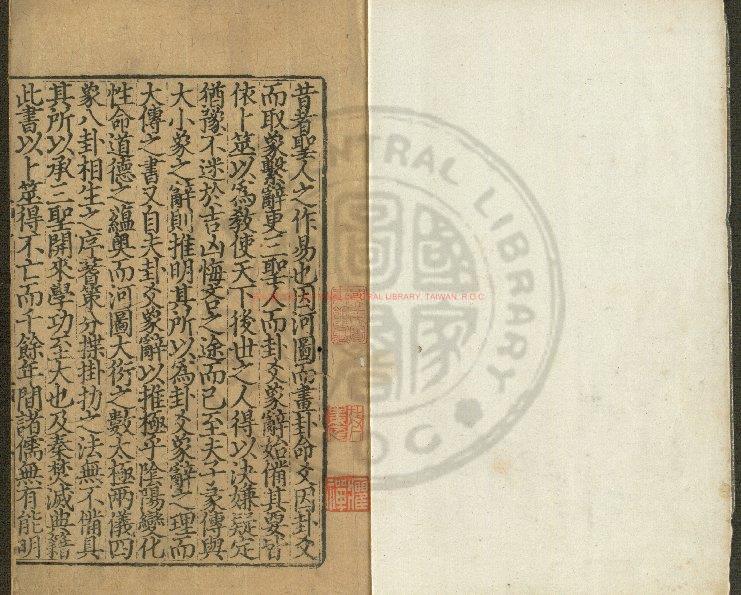 昔者聖人之作易也因河圖而畫卦命爻因卦爻
而取象繫辭更三聖人而卦爻彖辭始備其要皆
依卜筮以為教使天下後世之人得以決嫌疑定
猶豫不迷於吉凶悔吝之途而已至夫子彖傳與
大小象之辭則推明其所以為卦爻彖辭之理而
大傳之書又自夫卦爻彖辭以推極乎陰陽變化
性命道德之蘊奧而河圖大衍之數太極兩儀四
象八卦相生之序蓍策分揲掛扐之法無不備具
其所以承二聖開來學功至大也及秦焚滅典籍
此書以卜筮得不亡而千餘年間諸儒無有能明
NATIONAL CENTRAL LIBRARY, TAIWAN, R.O.C
CENTRAL LIBRARY
ROC
國家圖書